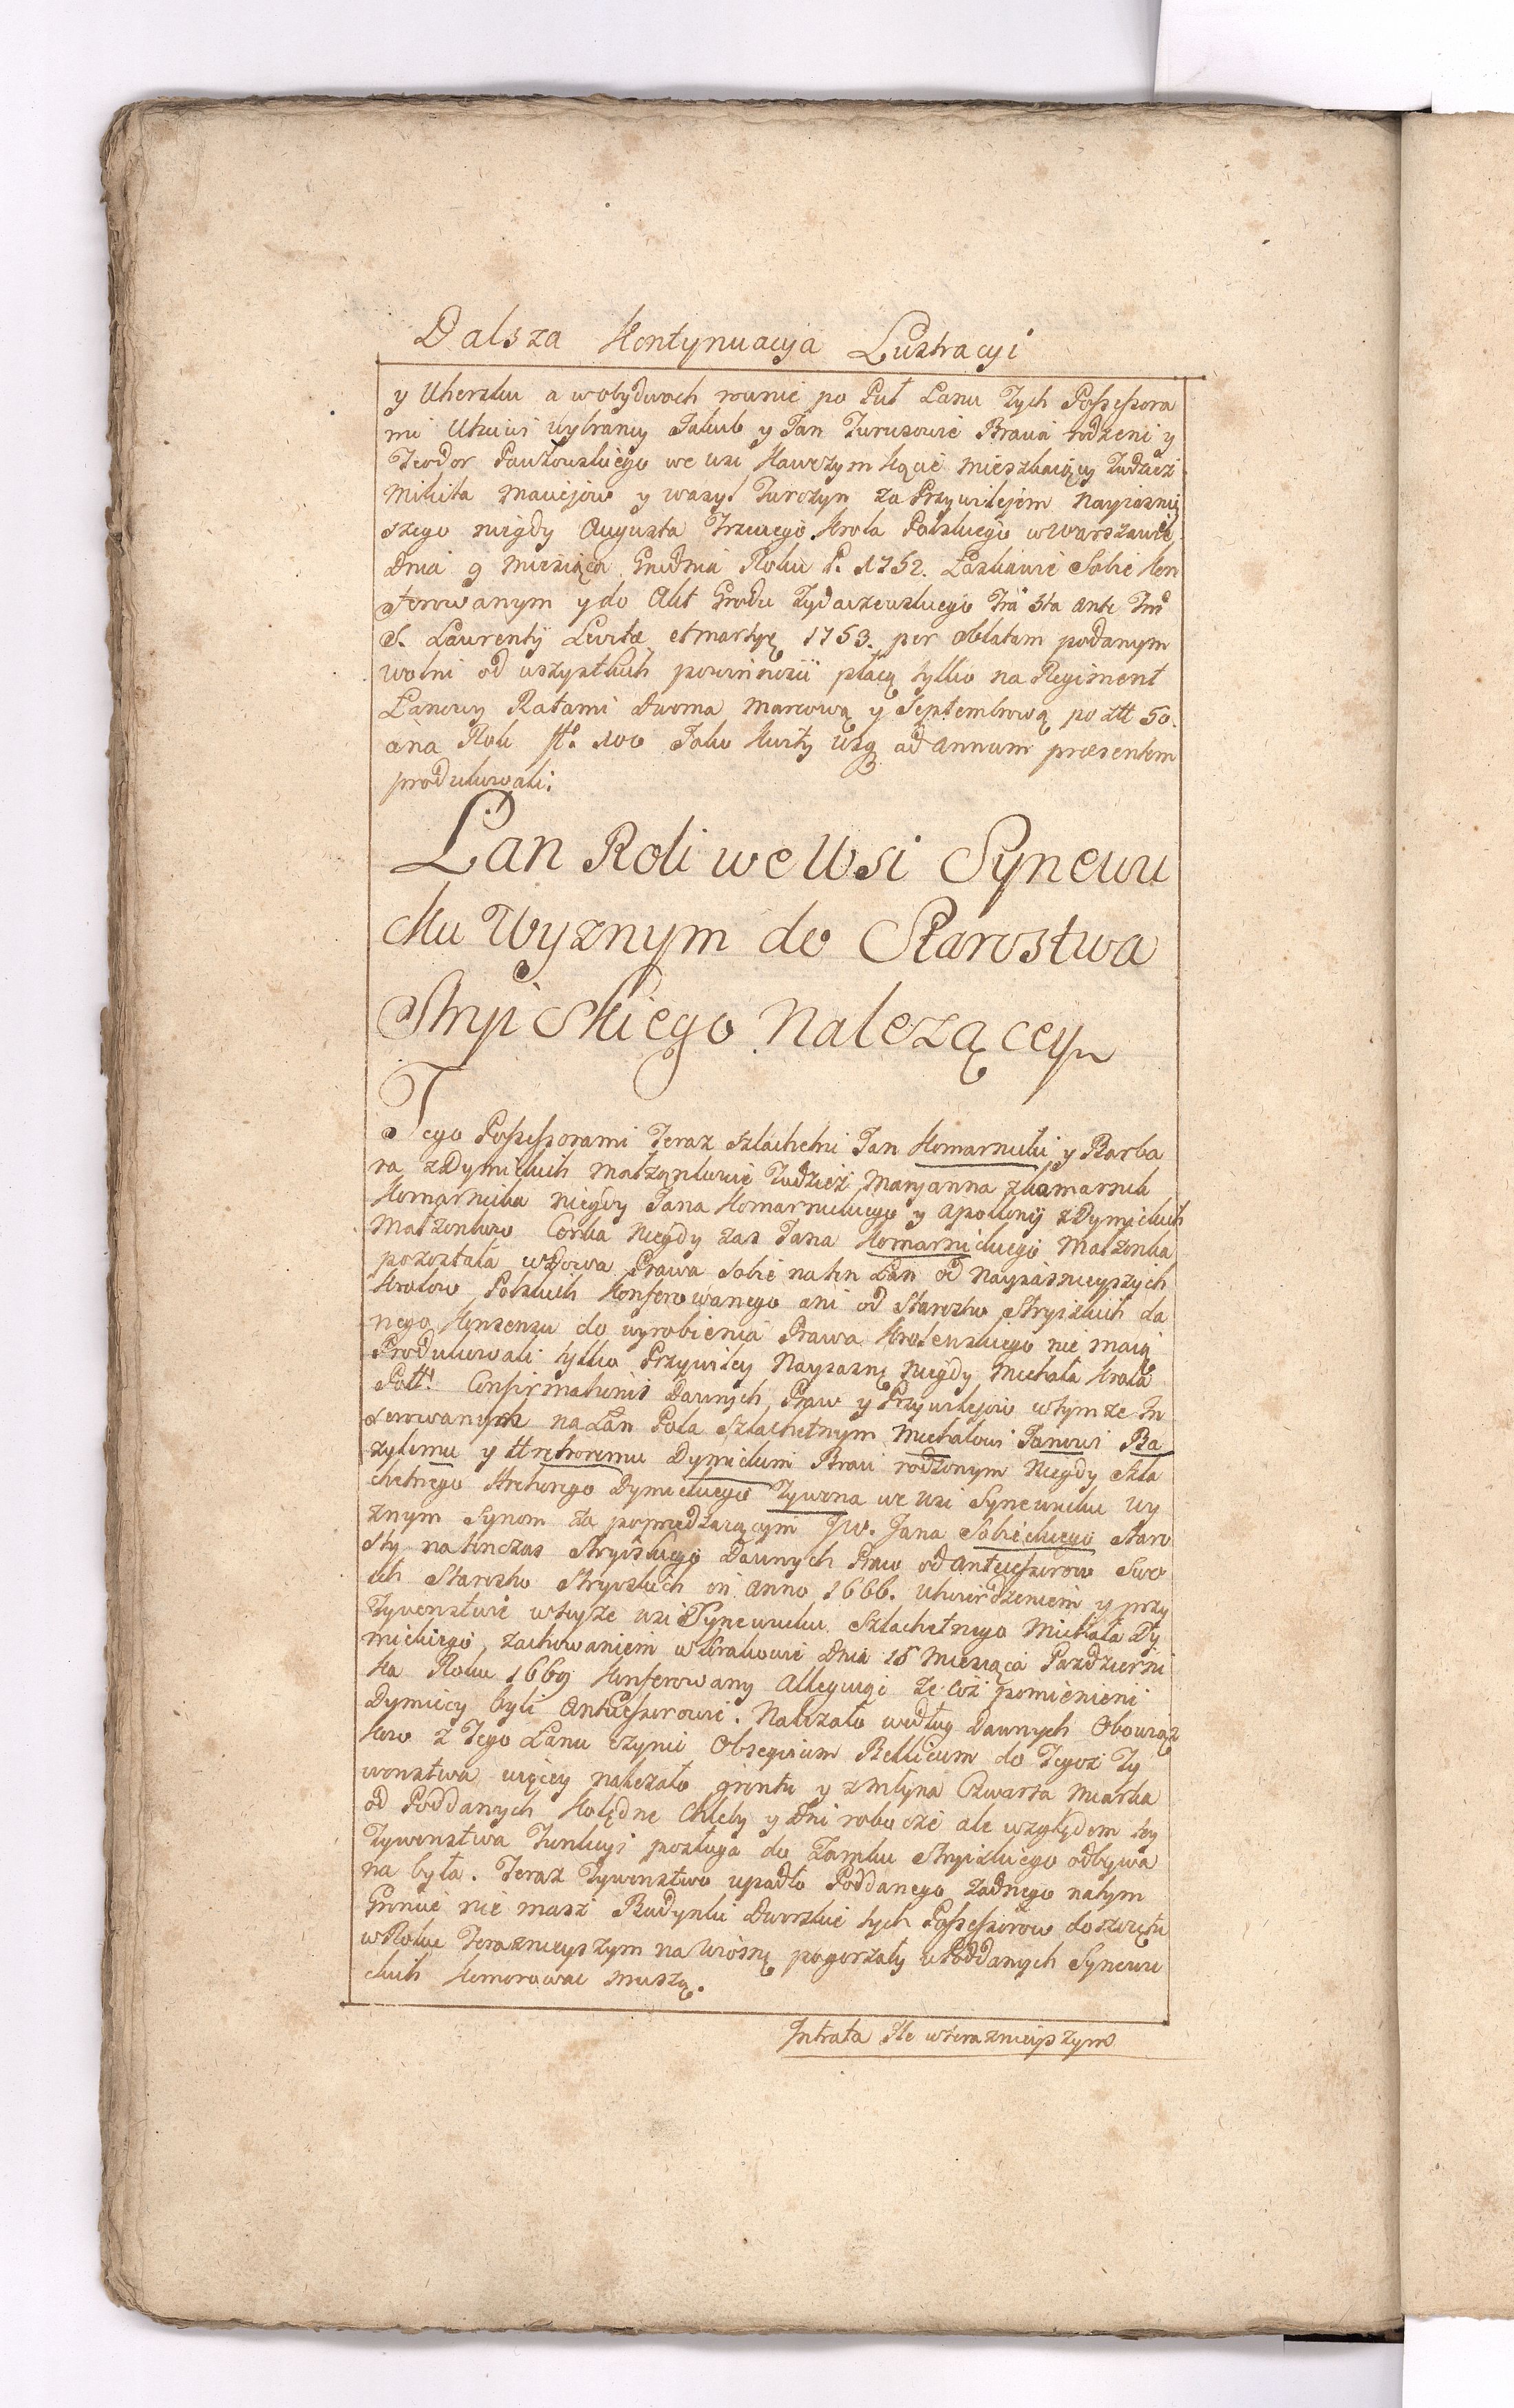 Dalsza Kontynuacyja Lustracyi
y Uhersku a wobydwoch rownie po Puł Lanu Tych Possessora
mi Utściwi Wybrancy Jakub y Jan Turusowie Bracia rodzeni y
Teodor Pawłowskiego we wsi Kawczym Kącie mieszkaiący Tudziesz
Mikita Maciejow y Wasyl Turczyn za Przywilejem Nayiasniey
szego niegdy Augusta Trzeciego Krola Polskiego w Warszawie
dnia 9 Miesiąca Grudnia Roku P. 1752. Łaskawie Sobie Kon
ferowanym y do Akt Grodu Zydaczewskiego Fra 3tia ante Fm
S. Laurentÿ Levitæ et Martyr 1753. per oblatam podanym
wolni od wszystkich powinnosci płacą tylko na Regiment
Lanowy Ratami dwoma Marcową y Septembrową po złł 50.
a na Rok fl. 100 Jako Kwity usq ad Annum præsentem
produkowali:
Lan Roli we Wsi Synewu
cku Wyznym do Starostwa
Stryiskiego Nalezącey
Tego Possessorami Teraz szlachetni Jan Komarnicki y Barba
ra z Dymickich Małząnkowie Tudzież Maryanna z Komarnick
Komarnicka niegdy Jana Komarnickiego y Apollonij z Dymickich
Małzonkow Corka Niegdy zas Jana Komarnickiego Małzonka
pozostała wdowa Prawa sobie na ten Łan od Nayiasnieyszych
Krolow Polskich Konferowanego ani od Starostw Stryiskich da
nego Konsensu do wyrobienia Prawa Krolewskiego nie maią
Produkowali tylko Przywiley Nayiasn niegdy Michała Krola
Poll: Confirmationis Dawnych Praw y Przywilejow wtymze In
serowanych na Łan Pola Szlachetnym Michałowi Janowi Ba
zylemu y Hrehoremu Dymickim Braci rodzonym Niegdy Szla
chetnego Hrehorego Dymickiego Tywona we wsi Synewucku Wy
znym Synom Za poprzedzaiącym JW. Jana Sobieckiego Staro
sty natenczas Stryiskiego Dawnych Praw od Antecessorow Swo
ich Starostw Stryiskich in Anno 1666. utwierdzeniem y przy
Tywonstwie wteyze wsi Synewucku Szlachetnego Michała Dy
mickiego, zachowaniem w Krakowie dnia 18 Miesiąca Pazdzierni
ka Roku 1669 Konferowany Alleguiąc Ze ciz pomienieni
Dymiccy byli Antecessorowie. Nalezało według Dawnych Obowiąz
kow z Tego Lanu czynic Obsequium Bellicum do Tegoz Ty
wonstwa więcey nalezało gruntu y z młyna Czwarta Miarka
od Poddanych Kolędne Chleby y dni robocze ale względem tey
Tywonstwa Funkcyi posługa do Zamku Stryiskiego odbywa
na była. Teraz Tywonstwo upadło Poddanego zadnego natym
Gruncie nie masz Budynki Dworskie tych Possessorow doszczętu
w Roku Teraznieyszym na Wiosnę pogorzały u Poddanych Synewu
ckich Komorowac muszą.
Intrata Ile wteraznieyszym